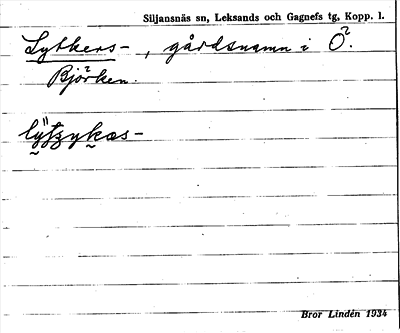 Siljansnäs sn, Leksands och Gagnefs tg, Kopp. l.
Lytkers- , gårdsnamn i Ö.
Björken.
Bror Lindén 1934